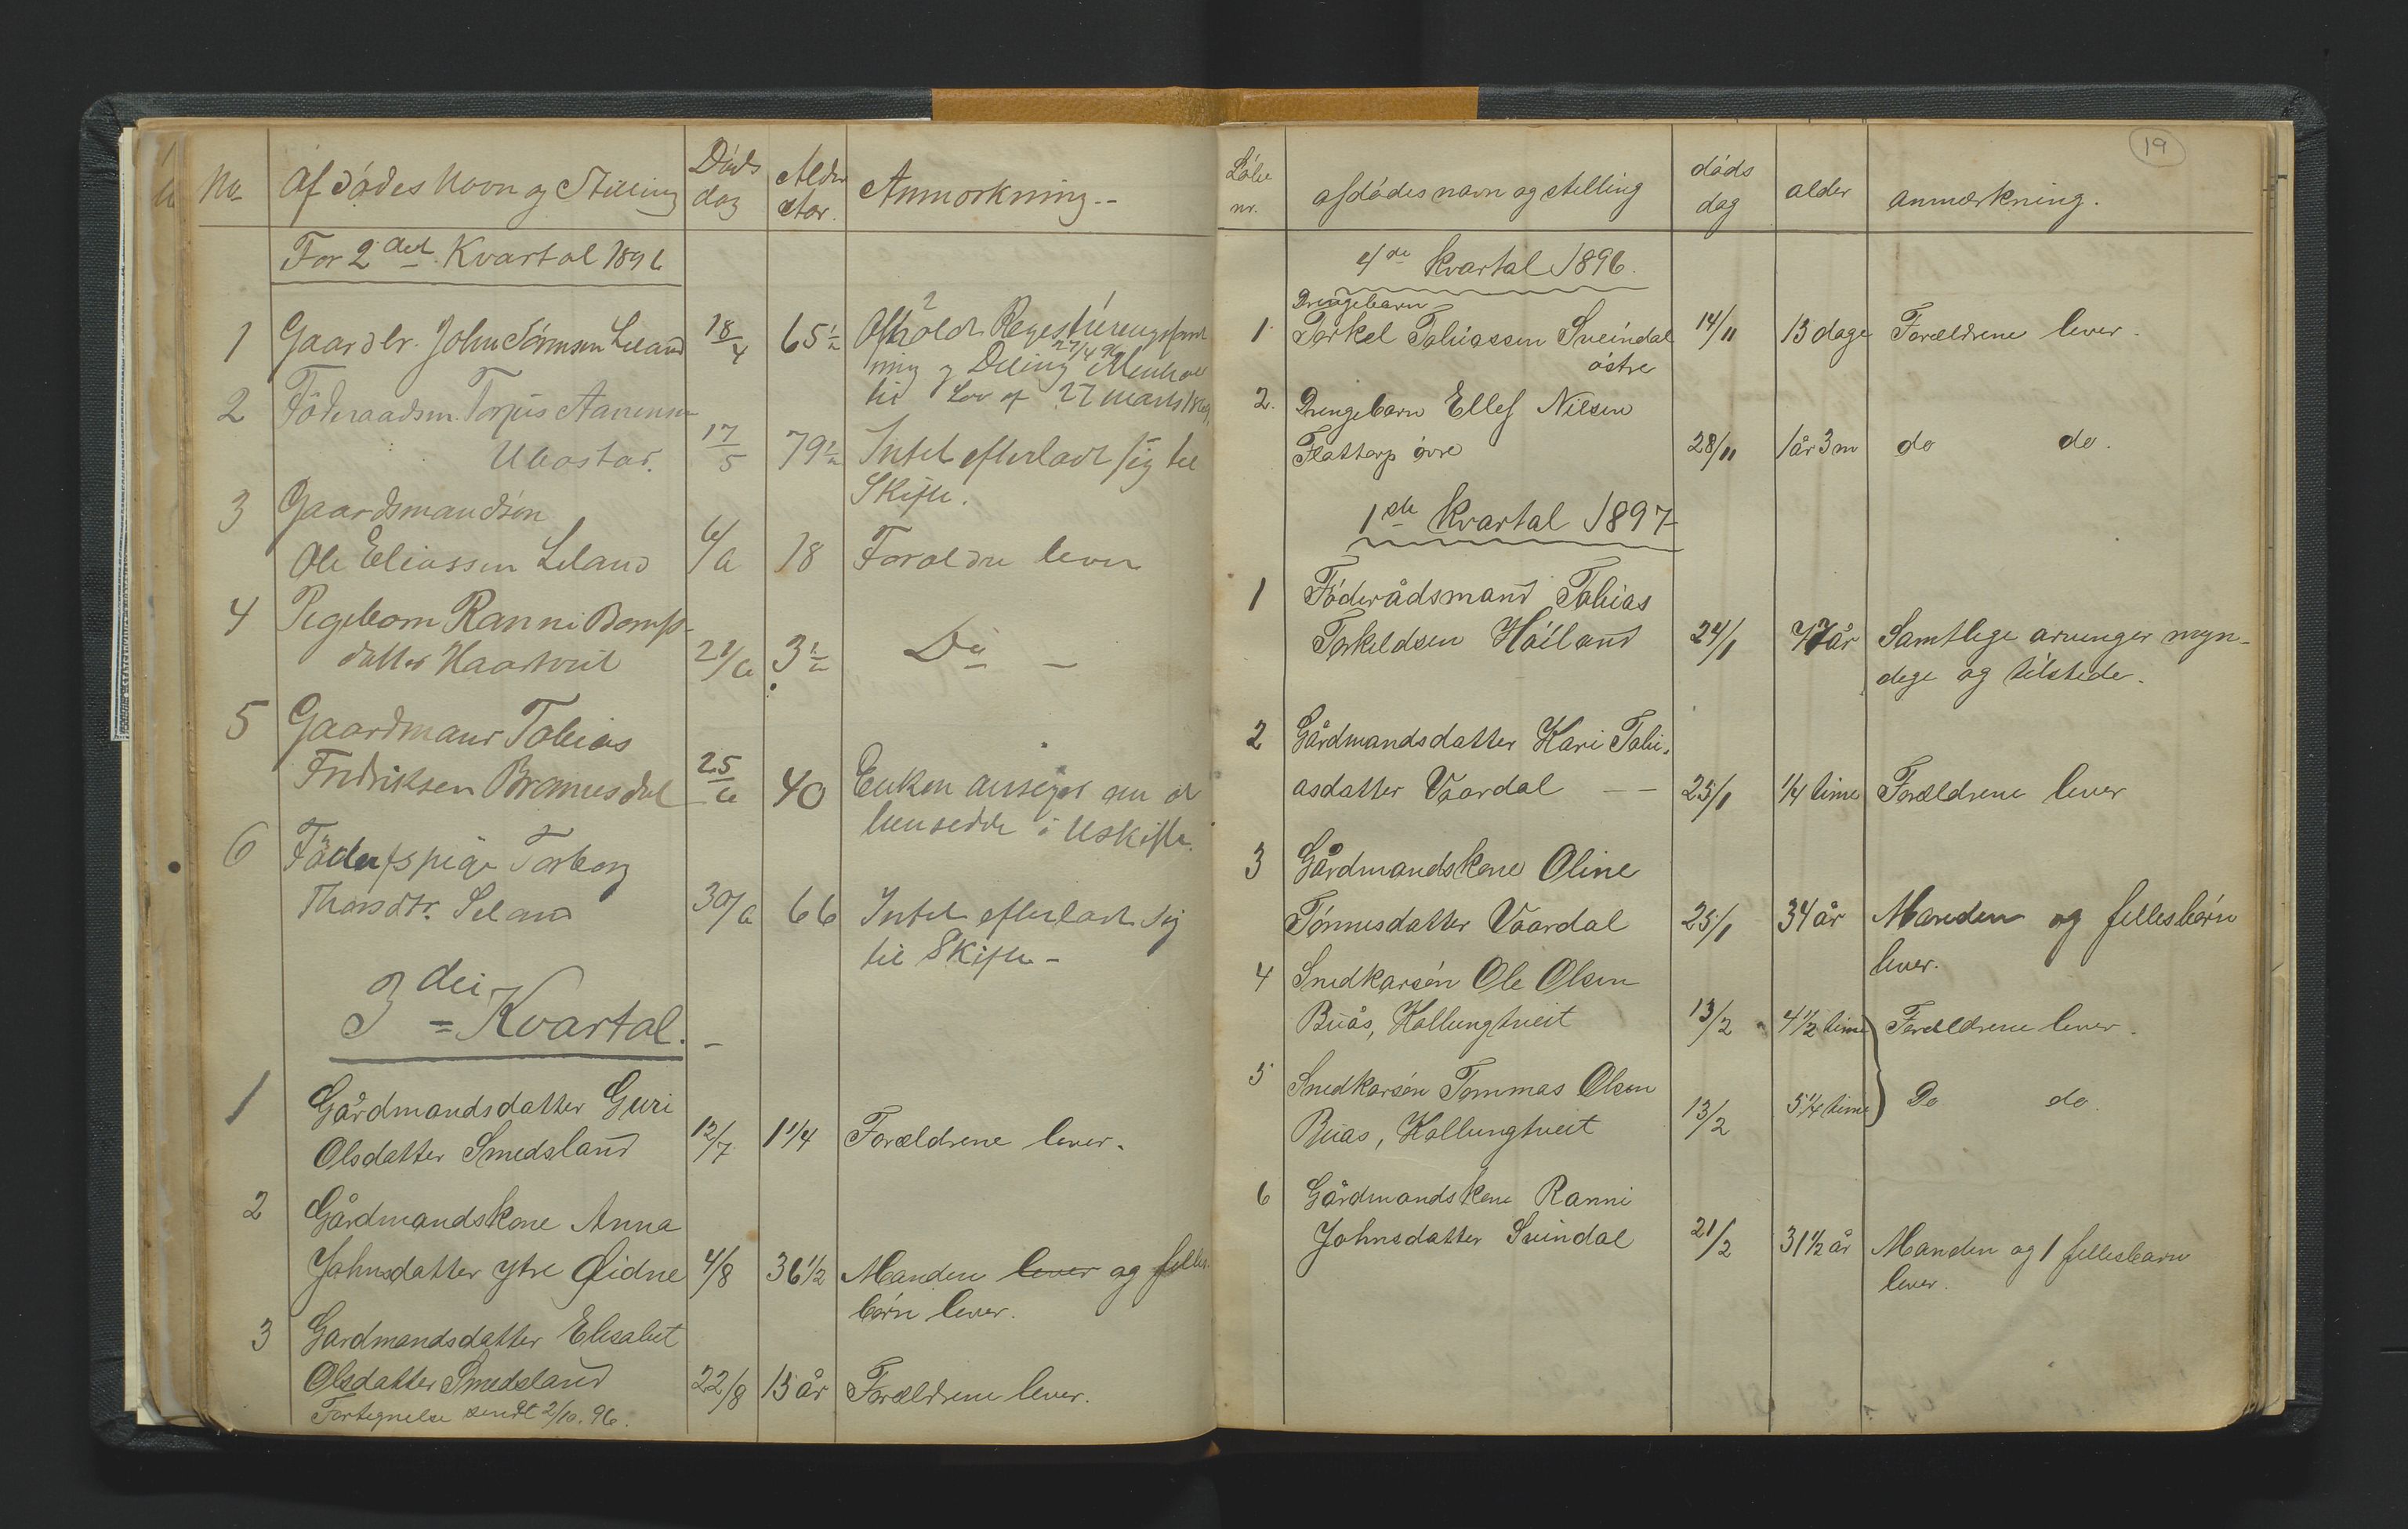 No Afdødes Navn og Stilling Døds dag Alder Anmerkning.-
For 2det Kvartal 1896
1 Gaardbr. John Tørresen Leland 18/4 65 1/2 Afholdt Registreringsforret
ning og Deling 27/4 96 i Henhold
til Lov af 27 marts 1869
2 Føderaadsm. Torjus Aanensen
Ubostad. 17/5 79 1/2 Intet efterladt sig til
Skifte.
3 Gaardsmandsøn
Ole Eliassen Leland 4/6 18 Forældre lever
4 Pigebarn Ranni Bernts-
datter Haaverstveit 21/6 3 1/2 Do -
5 Gaardmand Tobias
Fredriksen Bramesdal 25/6 40 Enken ansøger om at
hensidde i Uskifte.
6 Føderaadspige Torborg
Thorsdtr. Seland 30/6 66 Intet efterladt sig
til Skifte -
3die Kvartal. -
1 Gårdmandsdatter Guri
Olsdatter Smedsland 12/7 1 1/4 Forældrene lever.
2 Gårdmandskone Anna
Johnsdatter ytre Øidne 4/8 36 1/2 Manden lever og felles
børn lever.
3 Gardmandsdatter Elisabet
Olsdatter Smedsland 22/8 13 år Forældrene lever.
Fortegnelse sendt 2/10. 96.
19
Løbe nr. afdødes navn og stilling døds dag alder anmærkning.
4de kvartal 1896.
Drengebarn
1 Torkel Tobiassen Sveindal 14/11 13 dage Forældrene lever.
østre
2. Drengebarn Ellef Nilsen
Flottorp øvre 28/11 1 år 3 m do do.
1ste kvartal 1897
1 Föderådsmand Tobias
Torkeldsen Håiland 24/1 77 år Samtlige arvinger myn-
dige og tilstede.
2 Gårdmandsdatter Kari Tobi-
asdatter Vaardal - - 25/1 1/4 time Forældrene lever
3 Gårdmandskone Oline
Tønnesdatter Vaardal 25/1 34 år Manden og fellesbørn
lever.
4 Snedkersøn Ole Olsen
Buås, Hollungtveit 13/2 4 1/2 time Forældrene lever.
5 Snedkersøn Tommas Olsen
Buas, Hollungtveit 13/2 5 1/4 time Do do.
6 Gårdmandskone Ranni
Johnsdatter Sveindal 21/2 31 1/2 år Manden og 1 fellesbarn
lever.